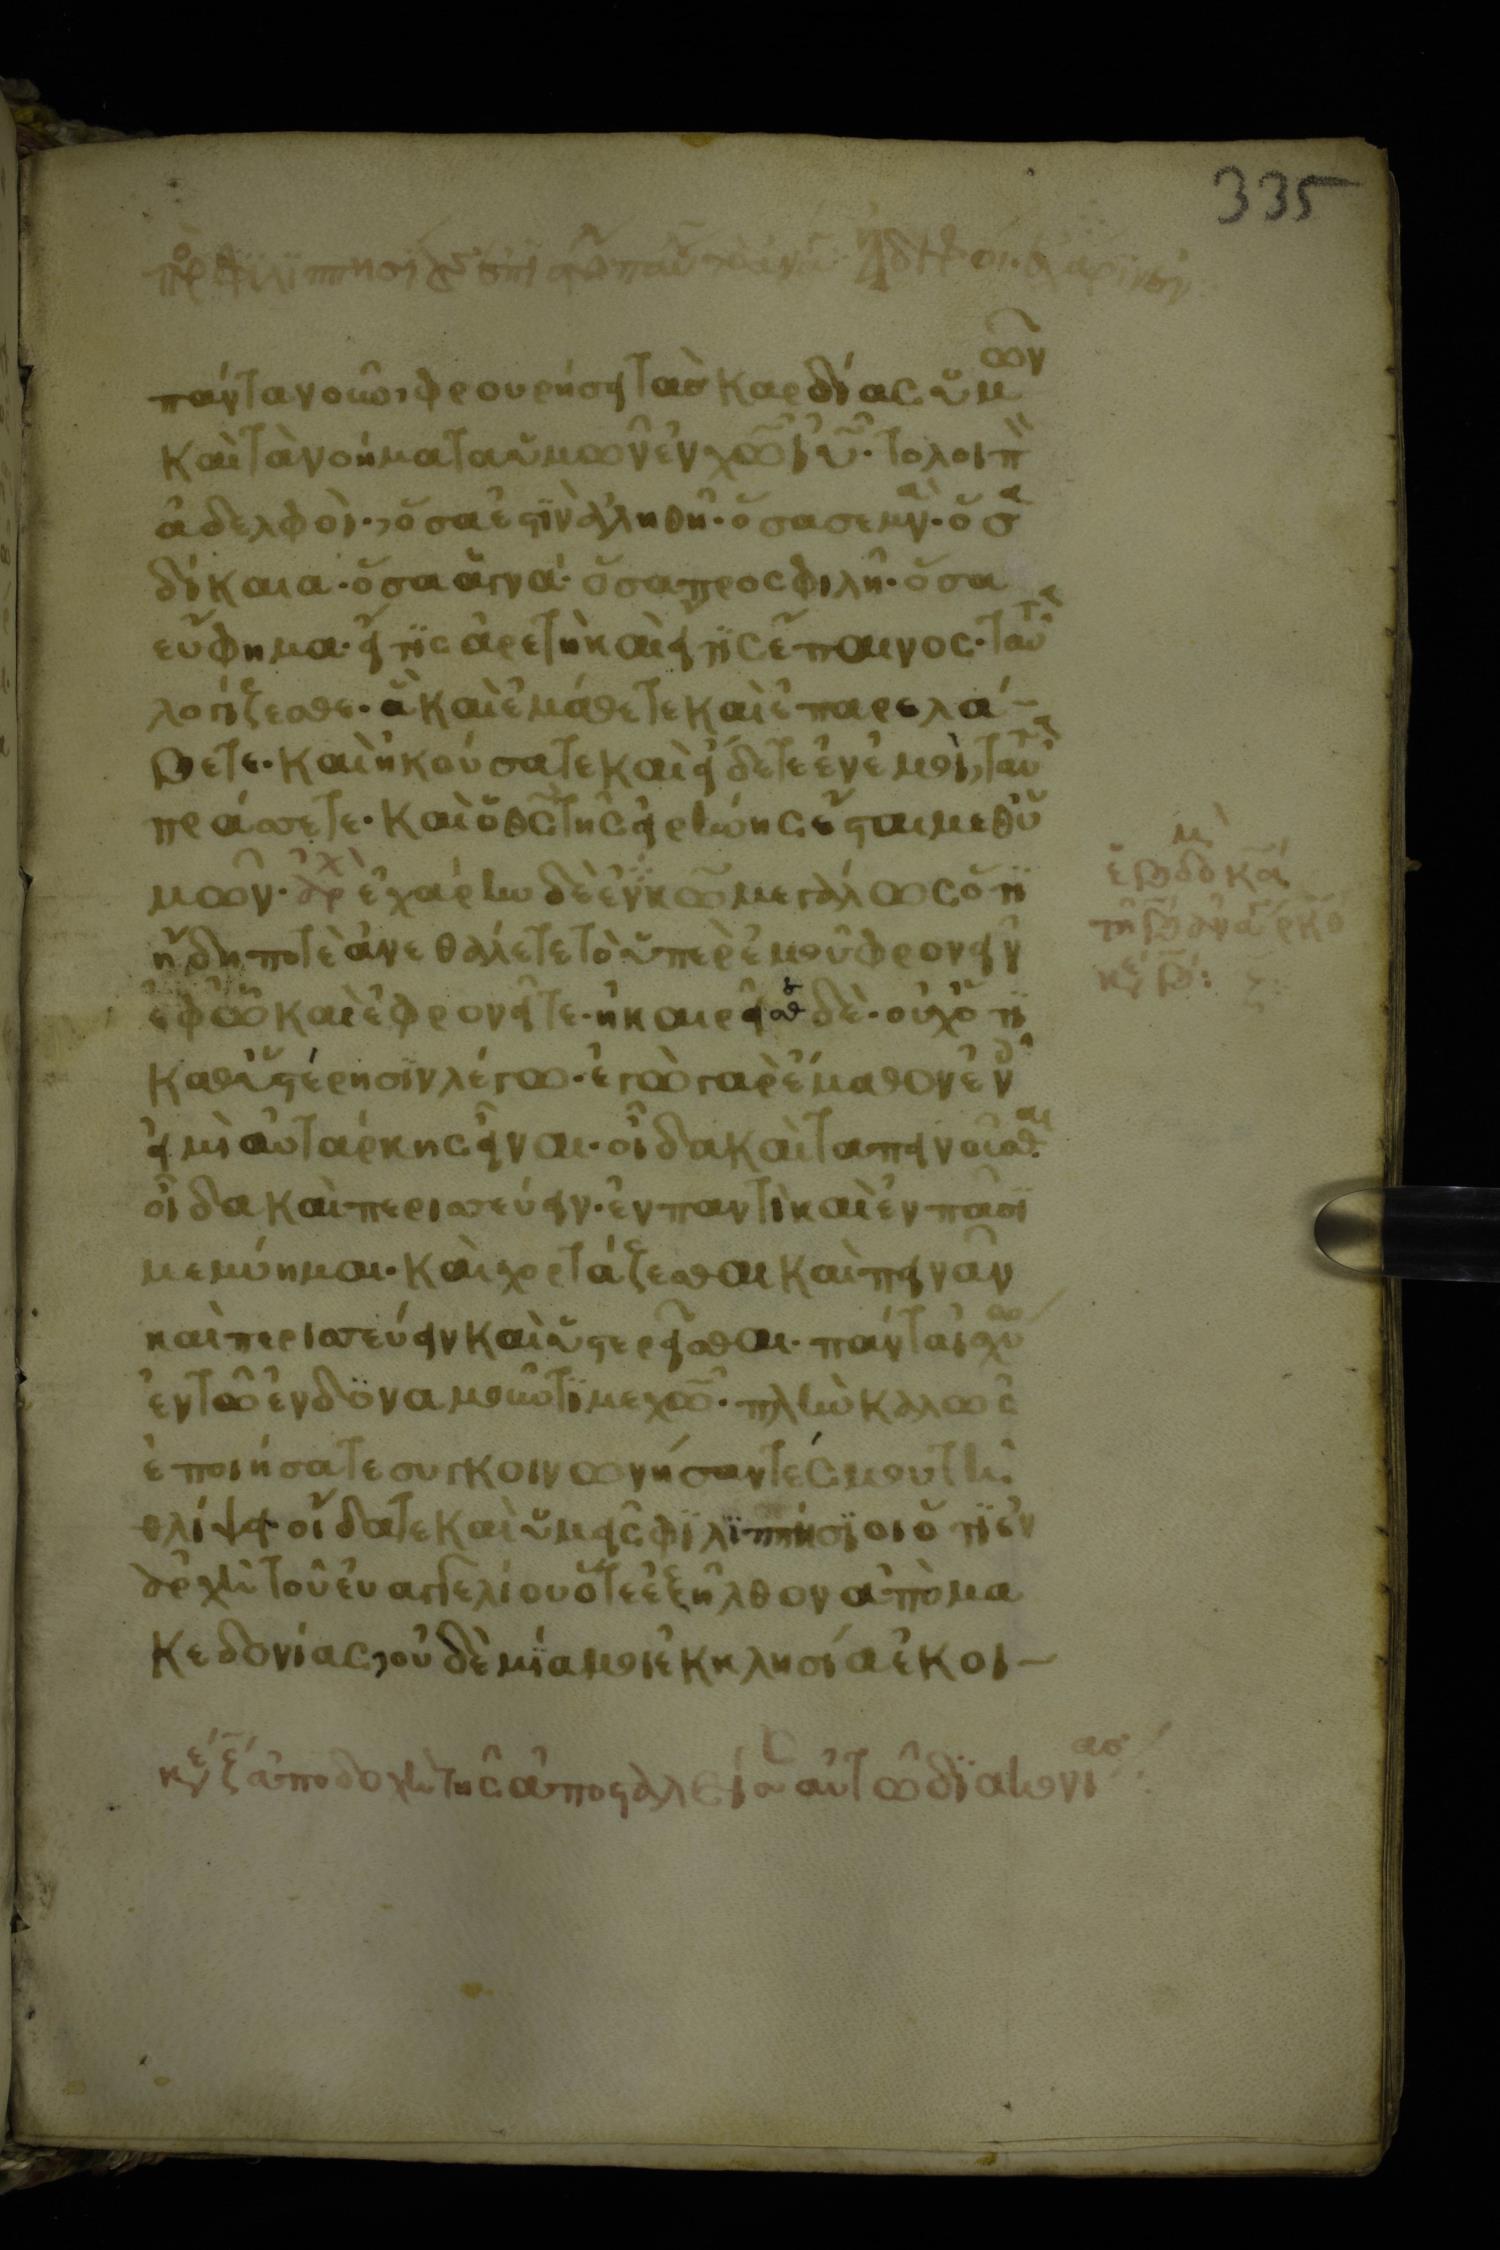 335
πάντα νοῦν, φρουρήσει τὰς καρδίας ὑμῶν
καὶ τὰ νοήματα ὑμῶν ἐν χῶ ιῦ· τολοιπὸ
ἀδελφοὶ, ὅσα ἐστὶν ἀληθῆ· ὅσα σεμνὰ· ὅσα
δίκαια· ὅσα ἁγνά· ὅσα προσφιλῆ· ὅσα
εὔφημα· εἴ τις ἀρετὴ καὶ εἴ τις ἔπαινος· ταῦτα
λογίζεσθε· ἃ καὶ ἐμάθετε καὶ ἐπαρελά-
βετε· καὶ ἠκούσατε καὶ εἴδετε ἐν ἐμοὶ, ταῦτα
πράσσετε· καὶ ὁ θς τῆς εἰρήνης ἔσται μεθ ὑ
μῶν· ἀρχ ἐχάρην δὲ ἐν κῶ μεγάλως ὅτι
ἤδη ποτὲ ἀνεθάλετε τὸ ὑπὲρ ἐμοῦ φρονεῖν
ἐφ ᾧ καὶ ἐφρονεῖτε· ἠκαιρεῖσθε δὲ· οὐχ ὅτι
καθ ὑστέρησιν λέγω· ἐγὼ γὰρ ἔμαθον ἐν οἷς
εἰμὶ αὐτάρκης εἶναι· οἶδα καὶ ταπεινοῦσθαι·
οἶδα καὶ περισσεύειν· ἐν παντὶ καὶ ἐν πᾶσι
μεμύημαι· καὶ χορτάζεσθαι καὶ πεινᾶν
καὶ περισσεύειν καὶ ὑστερεῖσθαι· πάντα ἰσχύω
ἐν τῶ ἐνδυναμοῦντί με χῶ· πλὴν καλῶς
ἐποιήσατε συγκοινωνήσαντές μου τῆ
θλίψει· οἴδατε καὶ ὑμεῖς φιλιππήσιοι ὅτι ἐν
ἀρχῆ τοῦ εὐαγγελίου ὅτε ἐξῆλθον ἀπὸ μα
κεδονίας, οὐδὲ μία μοι ἐκκλησία ἐκοι-
ἀποδοχὴ τῆς ἀποσταλεί αὐτῶ διακονίας